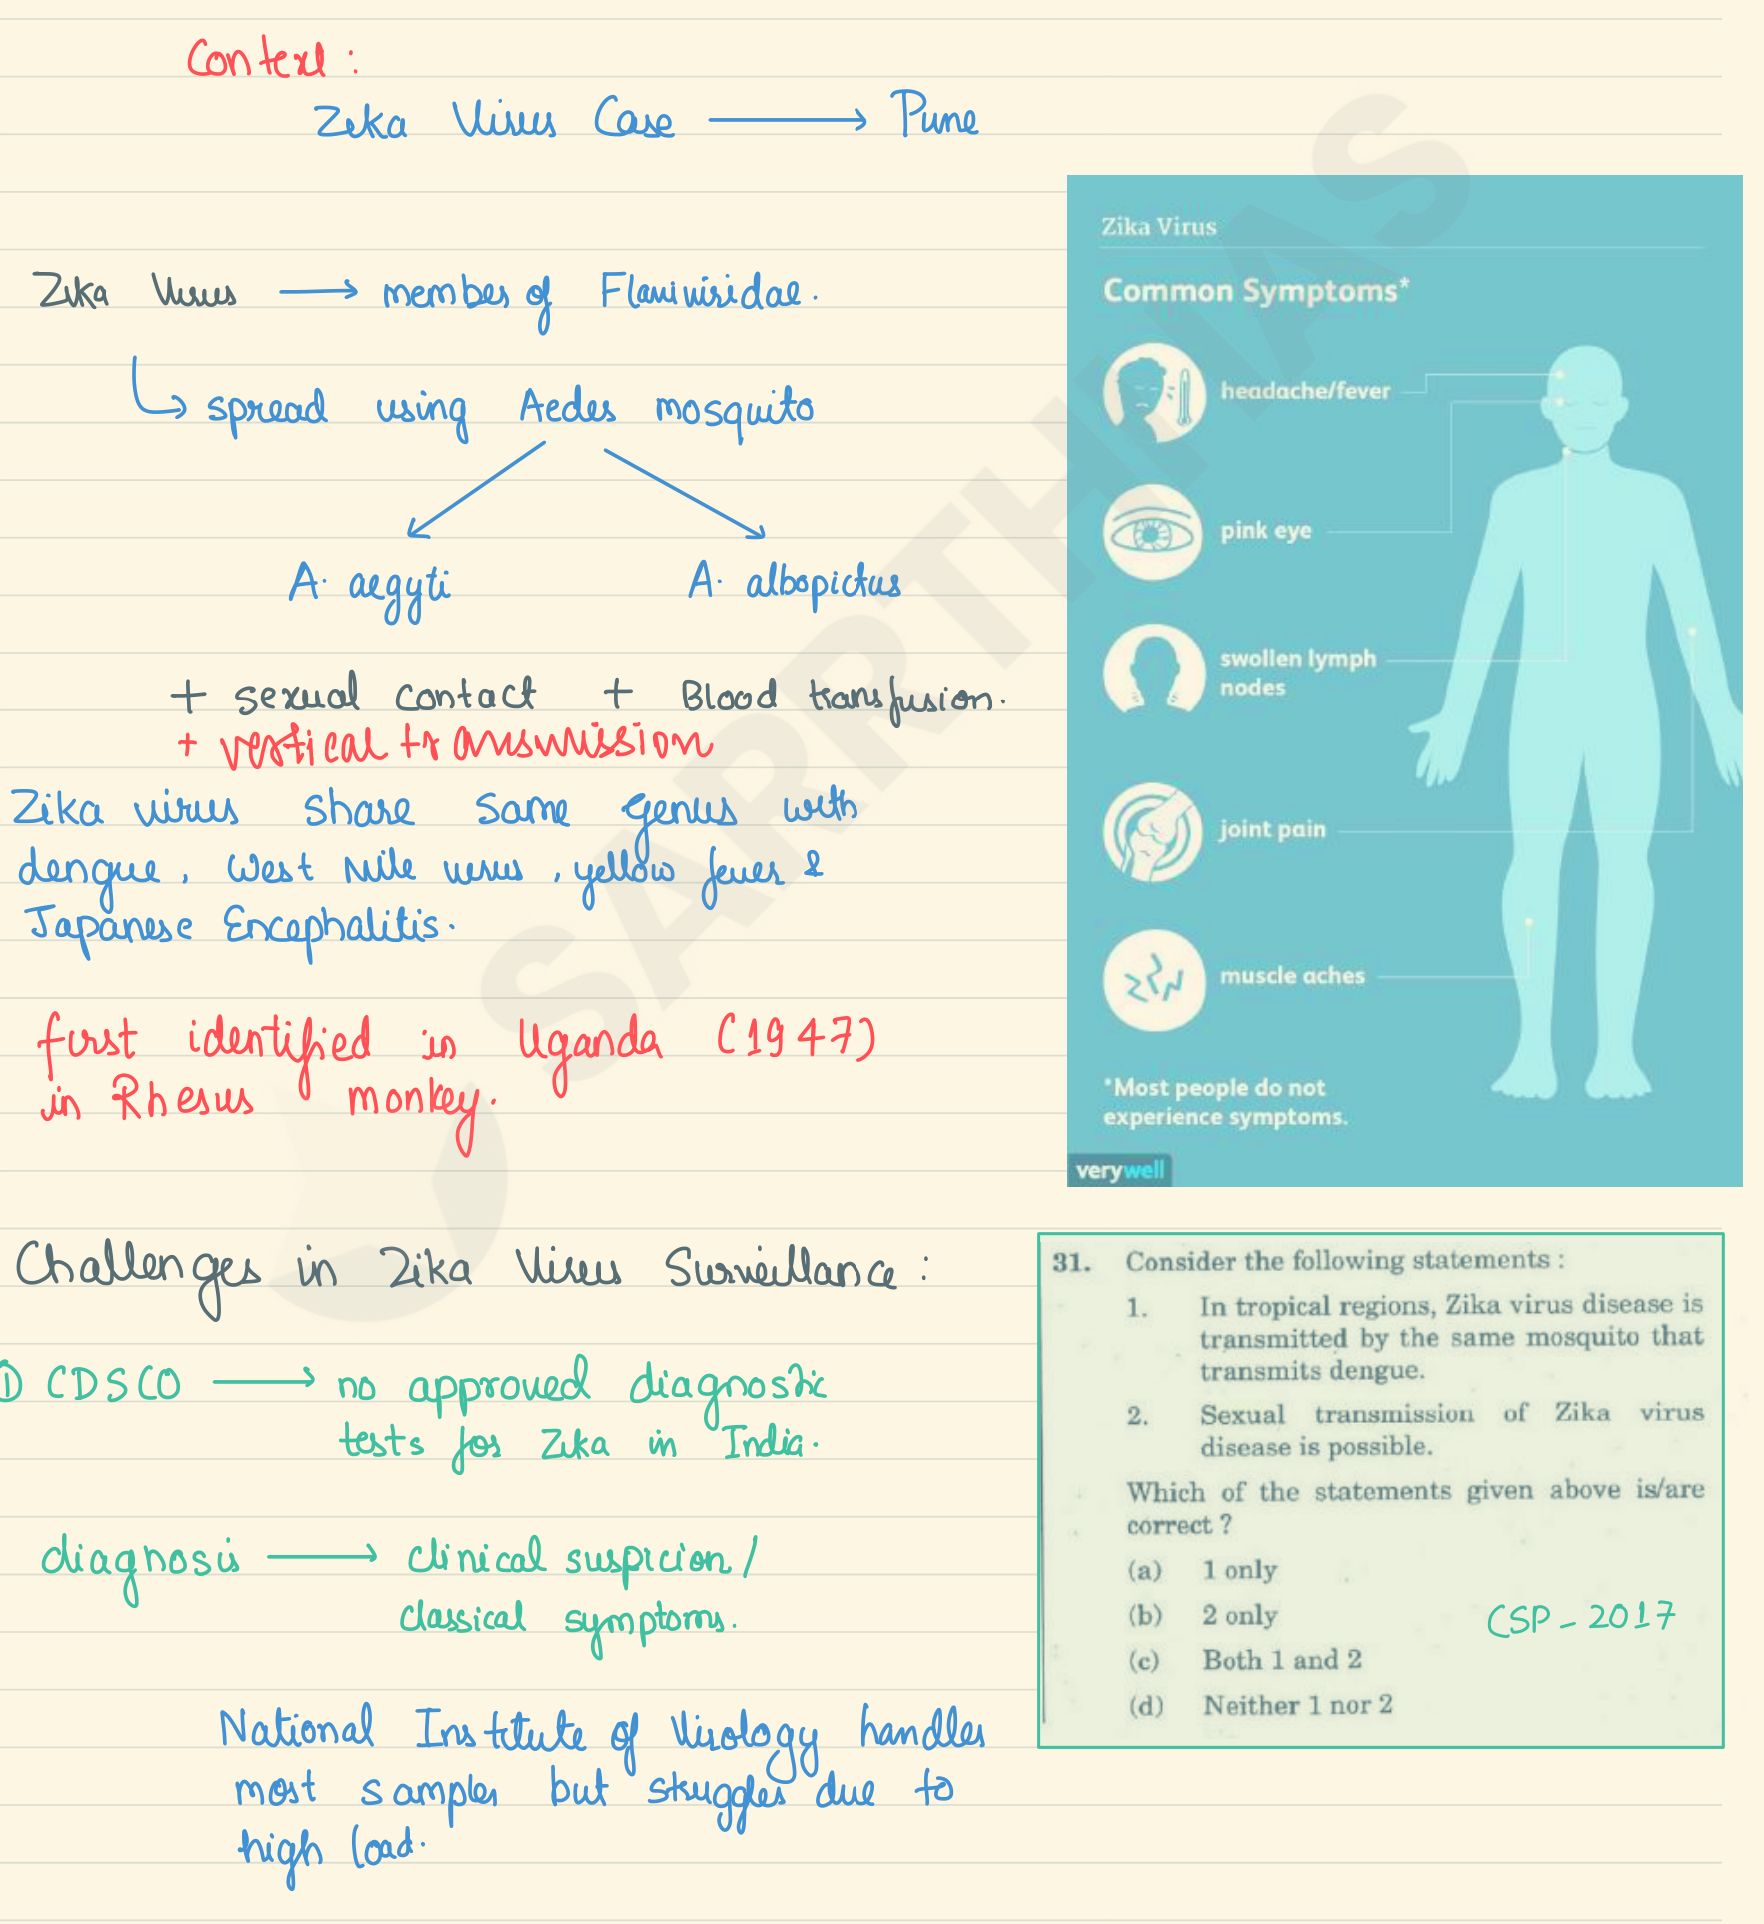 Context :
Zika Virus Case → Pune
Zika Virus → member of Flaviviridae.
↳ spread using Aedes mosquito
A. aegyti
A. albopictus
+ sexual contact + Blood transfusion.
+ vertical transmission
Zika virus share same genus with
dengue, West Nile virus, yellow fever &
Japanese Encephalitis.
first identified in Uganda (1947)
in Rhesus monkey.
Zika Virus
Common Symptoms*
headache/fever
pink eye
swollen lymph
nodes
joint pain
muscle aches
*Most people do not
experience symptoms.
verywell
SARRTHI IAS
Challenges in Zika Virus Surveillance :
① CDSCO → no approved diagnostic
tests for Zika in India.
diagnosis → clinical suspicion /
classical symptoms.
National Institute of Virology handles
most samples but struggles due to
high load.
31. Consider the following statements :
1. In tropical regions, Zika virus disease is
transmitted by the same mosquito that
transmits dengue.
2. Sexual transmission of Zika virus
disease is possible.
Which of the statements given above is/are
correct ?
(a) 1 only
(b) 2 only
(c) Both 1 and 2
(d) Neither 1 nor 2
CSP - 2017